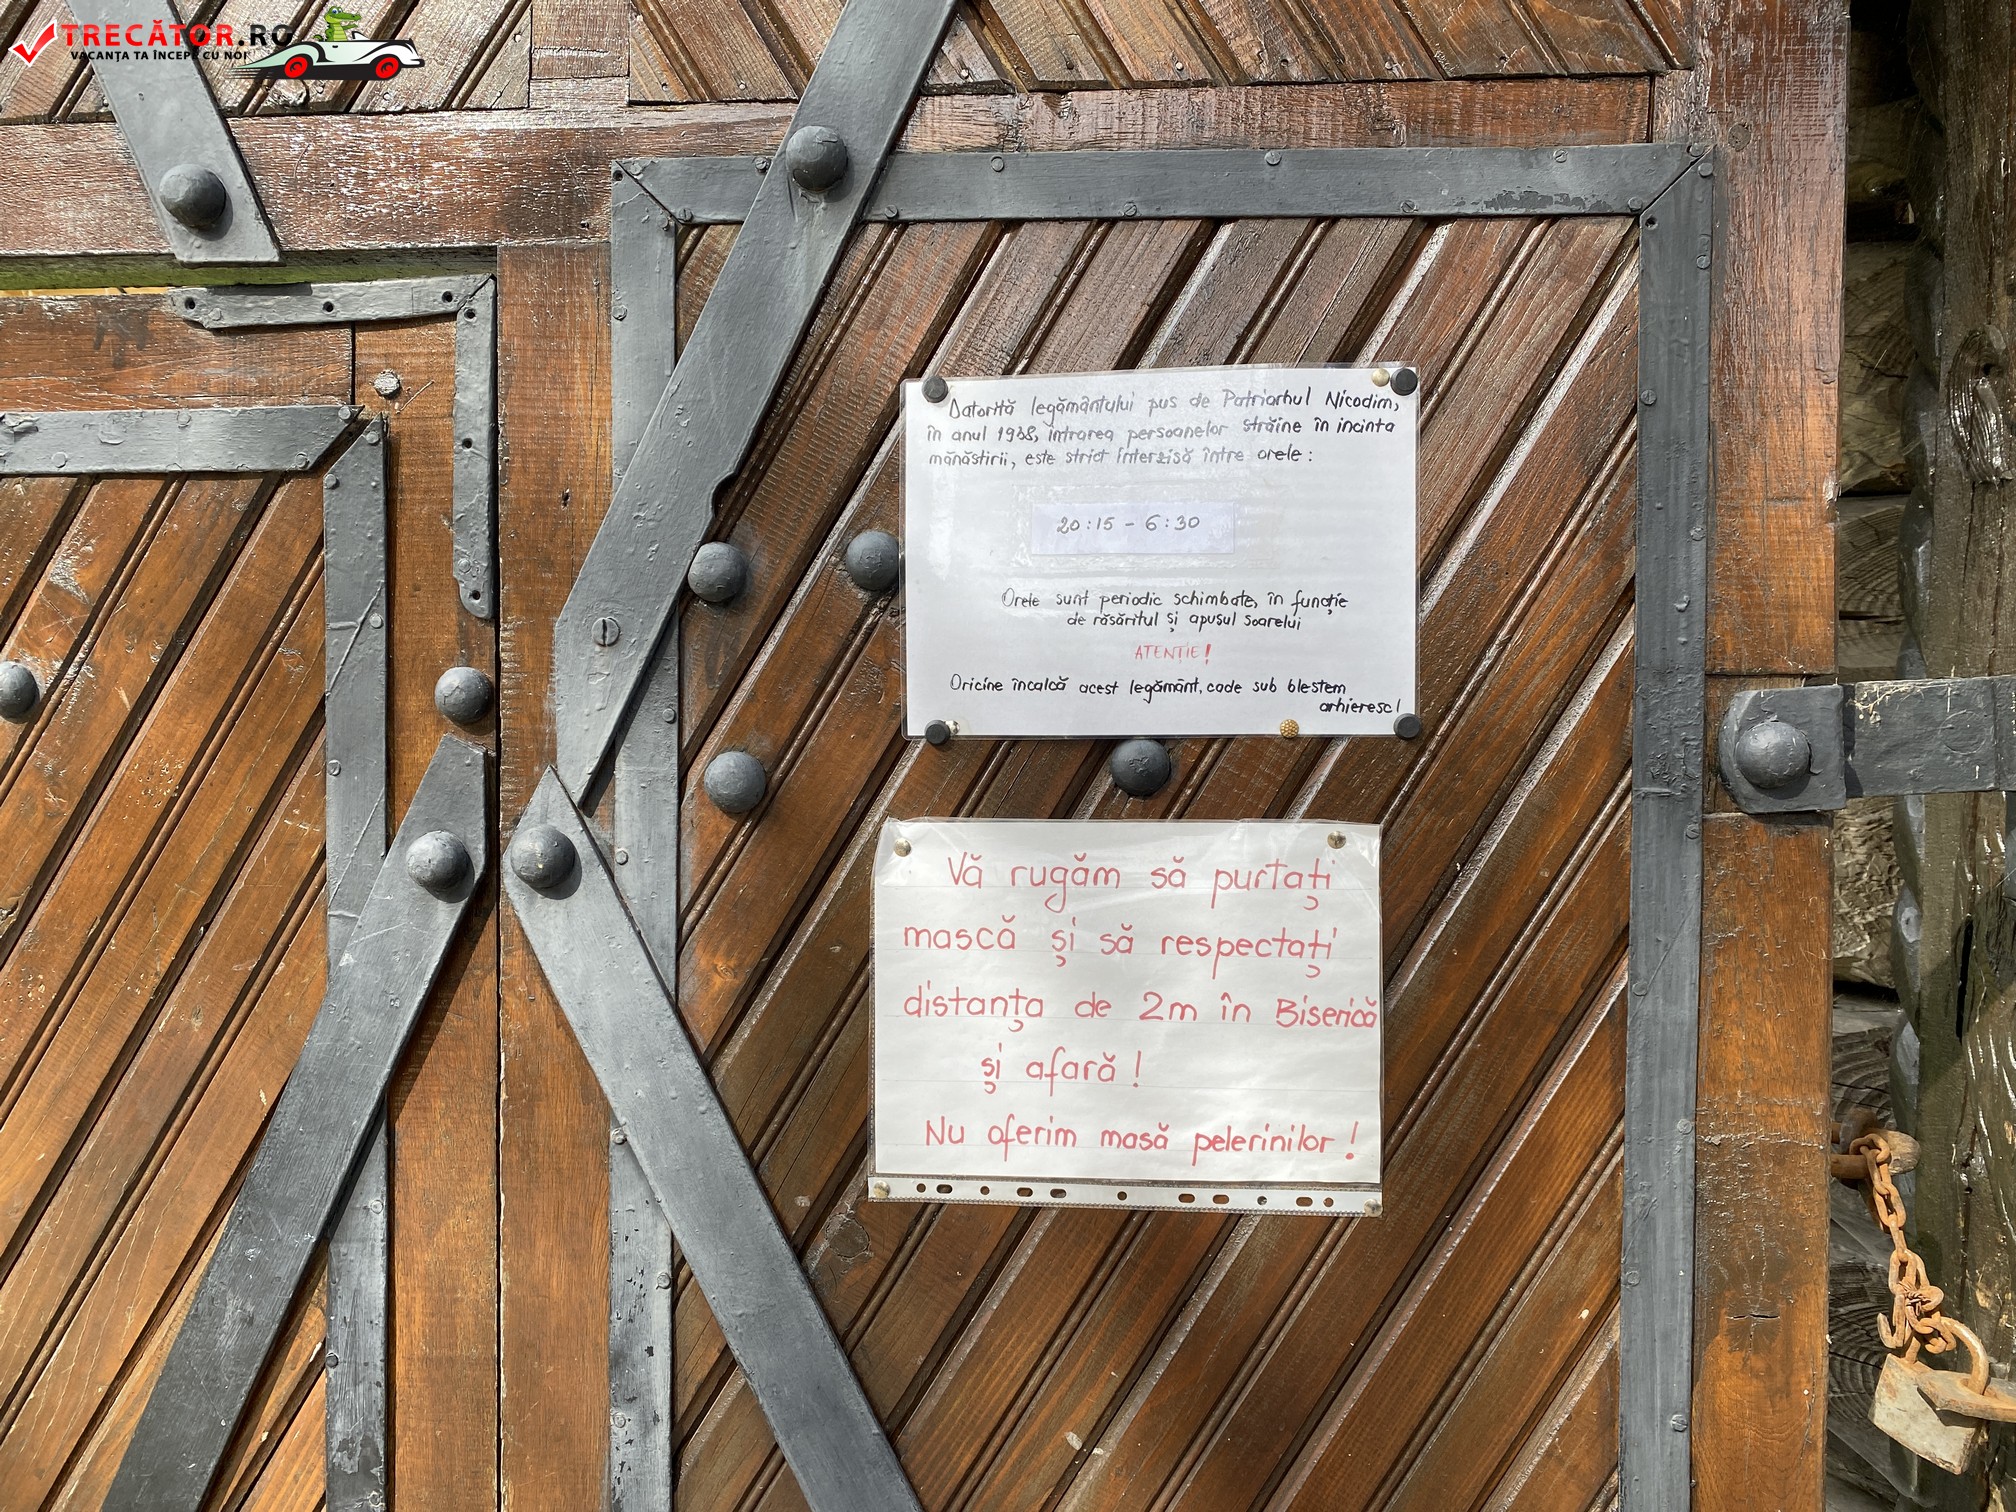 TRECĂTOR.RO
VACANȚA TA ÎNCEPE CU NOI
Datorită legământului pus de Patriarhul Nicodim,
în anul 1938, intrarea persoanelor străine în incinta
mănăstirii, este strict interzisă între orele:
20:15 - 6:30
Orele sunt periodic schimbate, în funcție
de răsăritul și apusul soarelui
ATENȚIE!
Oricine încalcă acest legământ, cade sub blestem
arhieresc!
Vă rugăm să purtați
mască și să respectați
distanța de 2m în Biserică
și afară!
Nu oferim masă pelerinilor!